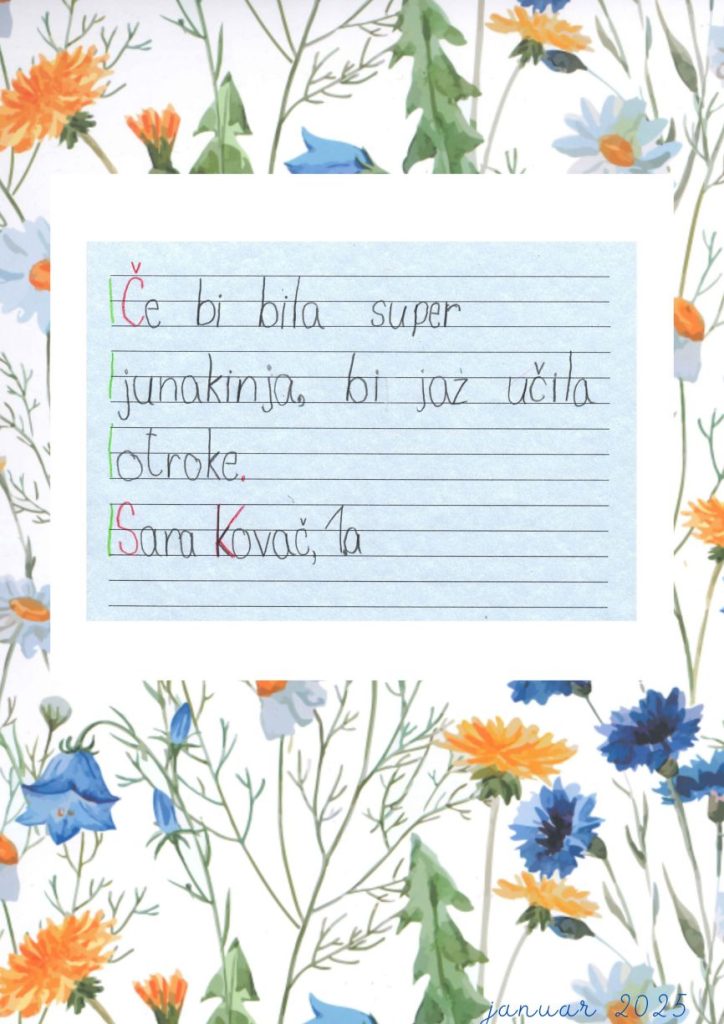 Če bi bila super
junakinja, bi jaz učila
otroke.
Sara Kovač, 1a
januar 2025